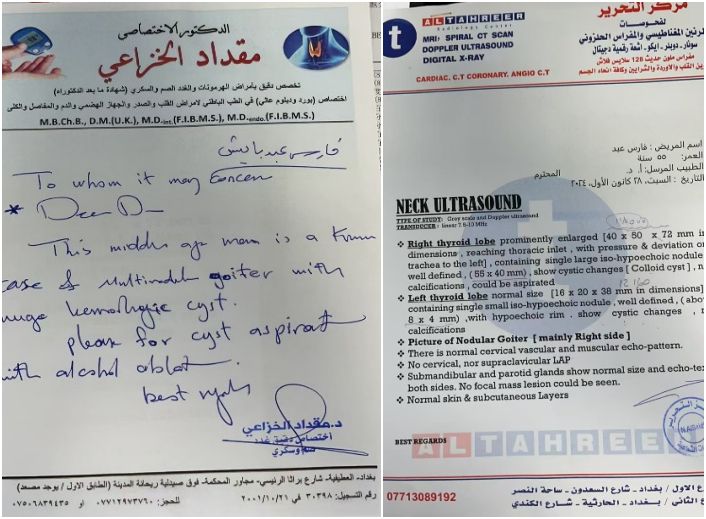 الدكتور الاختصاصي
مقداد الخزاعي
تخصص دقيق بأمراض الهرمونات والغدد الصم والسكري (شهادة ما بعد الدكتوراه)
اختصاص (بورد ودبلوم عالي) في الطب الباطني لامراض القلب والصدر والجهاز الهضمي والدم والمفاصل والكلى
M.B.Ch.B., D.M.(U.K.), M.D-int.(F.I.B.M.S.), M.D-endo.(F.I.B.M.S.)
فارس عبد
To whom it may Concern
* Dear Dr
This middle age man is a known
case of Multinodular goiter with
huge hemorrhagic cyst.
please for cyst aspirat
with alcohol ablat
best regards
د. مقداد الخزاعي
اختصاص دقيق غدد
صم وسكري
بغداد، العطيفية، شارع براثا الرئيسي، مجاور المحكمة، فوق صيدلية ريحانة المدينة (الطابق الاول / يوجد مصعد)
رقم التسجيل: ٣٠٣٩٨ في ٢٠٠١/١٠/٢١ للحجز: ٠٧٧١٢٩٧٣٧٦٠ او ٠٧٥٠٦٨٣٩٤٣٥
t
ALTAHREER
Radiology center
MRI- SPIRAL CT SCAN
DOPPLER ULTRASOUND
DIGITAL X-RAY
CARDIAC. C.T CORONARY. ANGIO C.T
مركز التحرير
لفحوصات
الرنين المغناطيسي والمفراس الحلزوني
سونار، دوبلر، ايكو، اشعة رقمية ديجيتال
مفراس ملون حديث 128 سلايس فلاش
القلب والاوردة والشرايين وكافة انحاء الجسم
اسم المريض : فارس عبد
العمر: ٥٥ سنة
الطبيب المرسل: أ. د. المحترم
التاريخ : السبت، ٢٨ كانون الأول، ٢٠٢٤
NECK ULTRASOUND
TYPE OF STUDY: Gray scale and Doppler ultrasound
TRANSDUCER : linear 7.5-10 MHz
❖ Right thyroid lobe prominently enlarged [40 x 50 x 72 mm in
dimensions , reaching thoracic inlet , with pressure & deviation o
trachea to the left] , containing single large iso-hypoechoic nodule
well defined , ( 55 x 40 mm) , show cystic changes [ Colloid cyst] , n
calcifications , could be aspirated
❖ Left thyroid lobe normal size [16 x 20 x 38 mm in dimensions]
containing single small iso-hypoechoic nodule , well defined , ( abov
8 x 4 mm) ,with hypoechoic rim . show cystic changes , n
calcifications
❖ Picture of Nodular Goiter [ mainly Right side ]
❖ There is normal cervical vascular and muscular echo-pattern.
❖ No cervical, nor supraclavicular LAP
❖ Submandibular and parotid glands show normal size and echo-tex
both sides. No focal mass lesion could be seen.
❖ Normal skin & subcutaneous Layers
BEST REGARDS
ALTAHREE
07713089192
ع الاول / بغداد - شارع السعدون - ساحة النصر
ع الثاني / بغداد - الحارثية - شارع الكندي